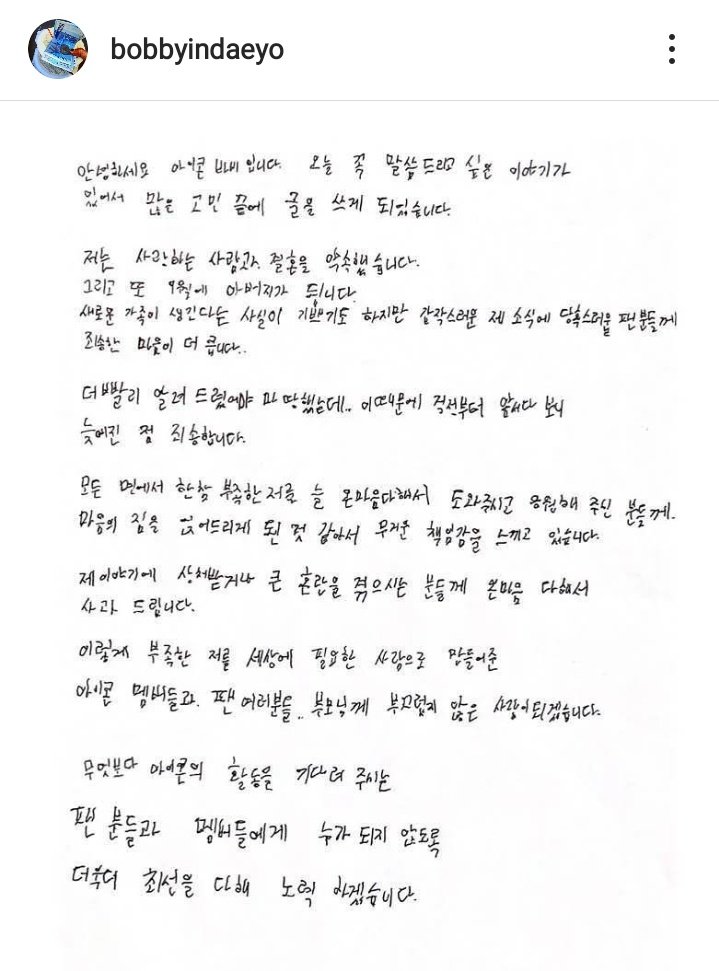 bobbyindaeyo
안녕하세요 아이콘 바비입니다. 오늘 꼭 말씀드리고 싶은 이야기가
있어서 많은 고민 끝에 글을 쓰게 되었습니다.
저는 사랑하는 사람과 결혼을 약속했습니다.
그리고 또 9월에 아버지가 됩니다.
새로운 가족이 생긴다는 사실이 기쁘기도 하지만 갑작스러운 제 소식에 당혹스러울 팬분들께
죄송한 마음이 더 큽니다..
더 빨리 알려 드렸어야 마땅했는데.. 이 때문에 걱정부터 앞서다 보니
늦어진 점 죄송합니다.
모든 면에서 한참 부족한 저를 늘 온마음다해서 도와주시고 응원해 주신 분들께.
마음의 짐을 얹어드리게 된 것 같아서 무거운 책임감을 느끼고 있습니다.
제 이야기에 상처받거나 큰 혼란을 겪으시는 분들께 온마음 다해서
사과 드립니다.
이렇게 부족한 저를 세상에 필요한 사람으로 만들어준
아이콘 멤버들과. 팬 여러분들.. 부모님께 부끄럽지 않은 사람이 되겠습니다.
무엇보다 아이콘의 활동을 기다려 주시는
팬 분들과 멤버들에게 누가 되지 않도록
더욱더 최선을 다해 노력 하겠습니다.